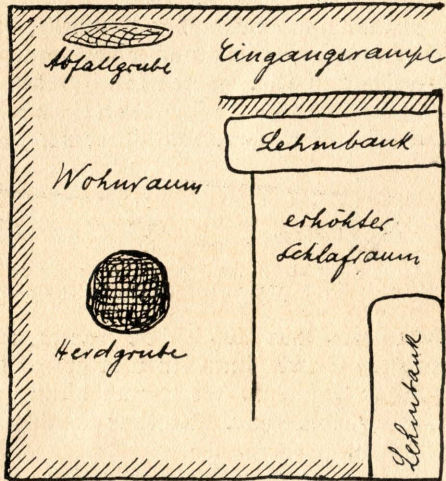 Abfallgrube
Eingangsrampe
Lehmbank
Wohnraum
erhöhter
Schlafraum
Herdgrube
Lehmbank